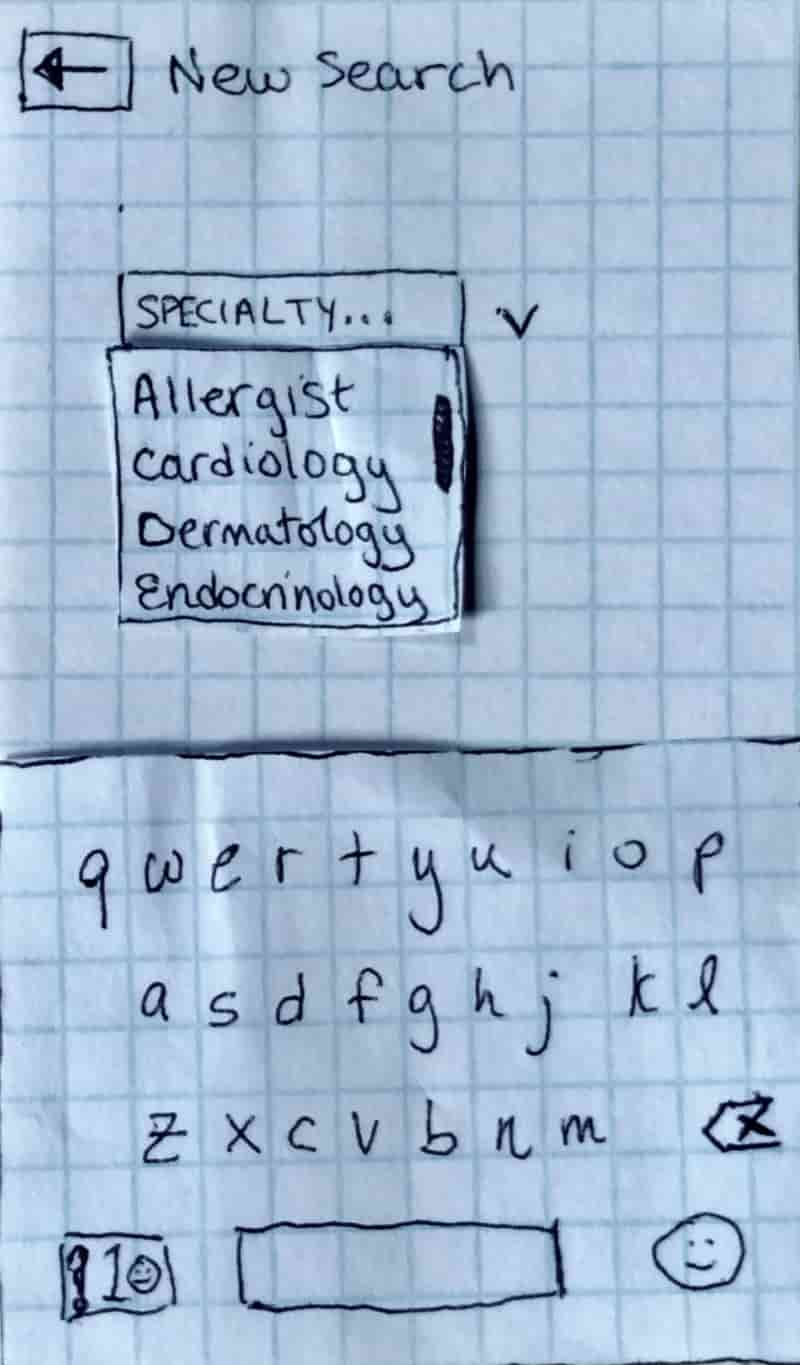 New Search
SPECIALTY...
Allergist
Cardiology
Dermatology
Endocrinology
q w e r t y u i o p
a s d f g h j k l
z x c v b n m
!1